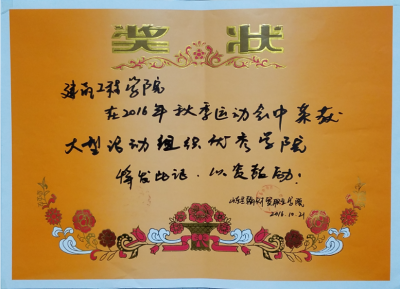 奖状
建筑工程学院
在2016年秋季运动会中荣获
大型活动组织优秀学院
特发此证，以资鼓励！
2016.10.21